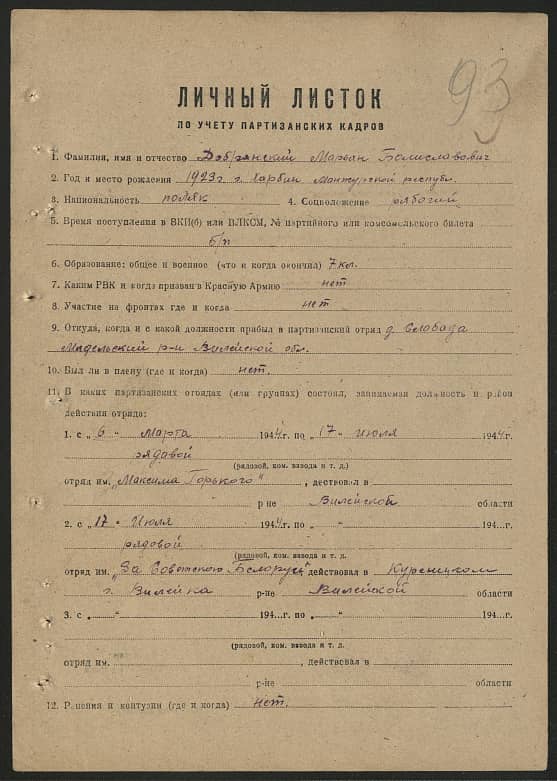 93
ЛИЧНЫЙ ЛИСТОК
ПО УЧЕТУ ПАРТИЗАНСКИХ КАДРОВ
1. Фамилия, имя и отчество Добрянский Марьян Болиславович
2. Год и место рождения 1923г г. Харбин Манжурской республ.
3. Национальность поляк 4. Соцположение рабочий
5. Время поступления в ВКП(б) или ВЛКСМ, № партийного или комсомольского билета
б/п
6. Образование: общее и военное (что и когда окончил) 7 кл.
7. Каким РВК и когда призван в Красную Армию нет
8. Участие на фронтах где и когда нет
9. Откуда, когда и с какой должности прибыл в партизанский отряд д. Слобода
Мядельский р-н Вилейской обл.
10. Был ли в плену (где и когда) нет.
11. В каких партизанских отрядах (или группах) состоял, занимаемая должность и район
действия отряда:
1. с „6" Марта 1944г. по „17" Июля 1944г.
рядавой
(рядовой, ком. взвода и т. д.)
отряд им. „Максима Горького", дествовал в
р-не Вилейской области
2. с „17" Июля 1944г. по „ " 194...г.
рядовой
(рядовой, ком. взвода и т. д.
отряд им. „За Советскую Белорусь", действовал в Куреницком
г. Вилейка р-не Вилейской области
3. с „ " 194...г. по „ " 194...г.
(рядовой, ком. взвода и т. д.
отряд им. , действовал в
р-не области
12. Ранения и контузии (где и когда) нет.